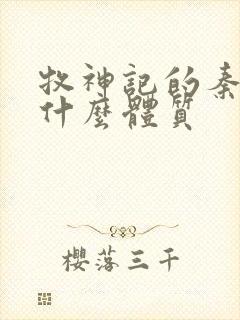 牧神記的秦
什麼體質
櫻落三千